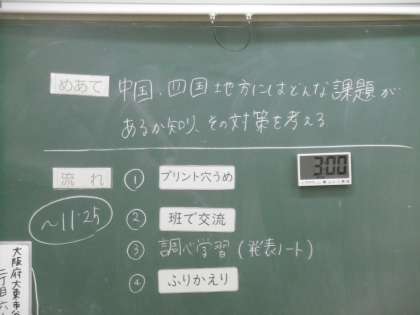 めあて 中国、四国地方にはどんな課題が
あるか知り、その対策を考える
流れ ① プリント穴うめ
3:00
〜11:25
② 班で交流
③ 調べ学習(発表ノート)
④ ふりかえり
大阪府大東市